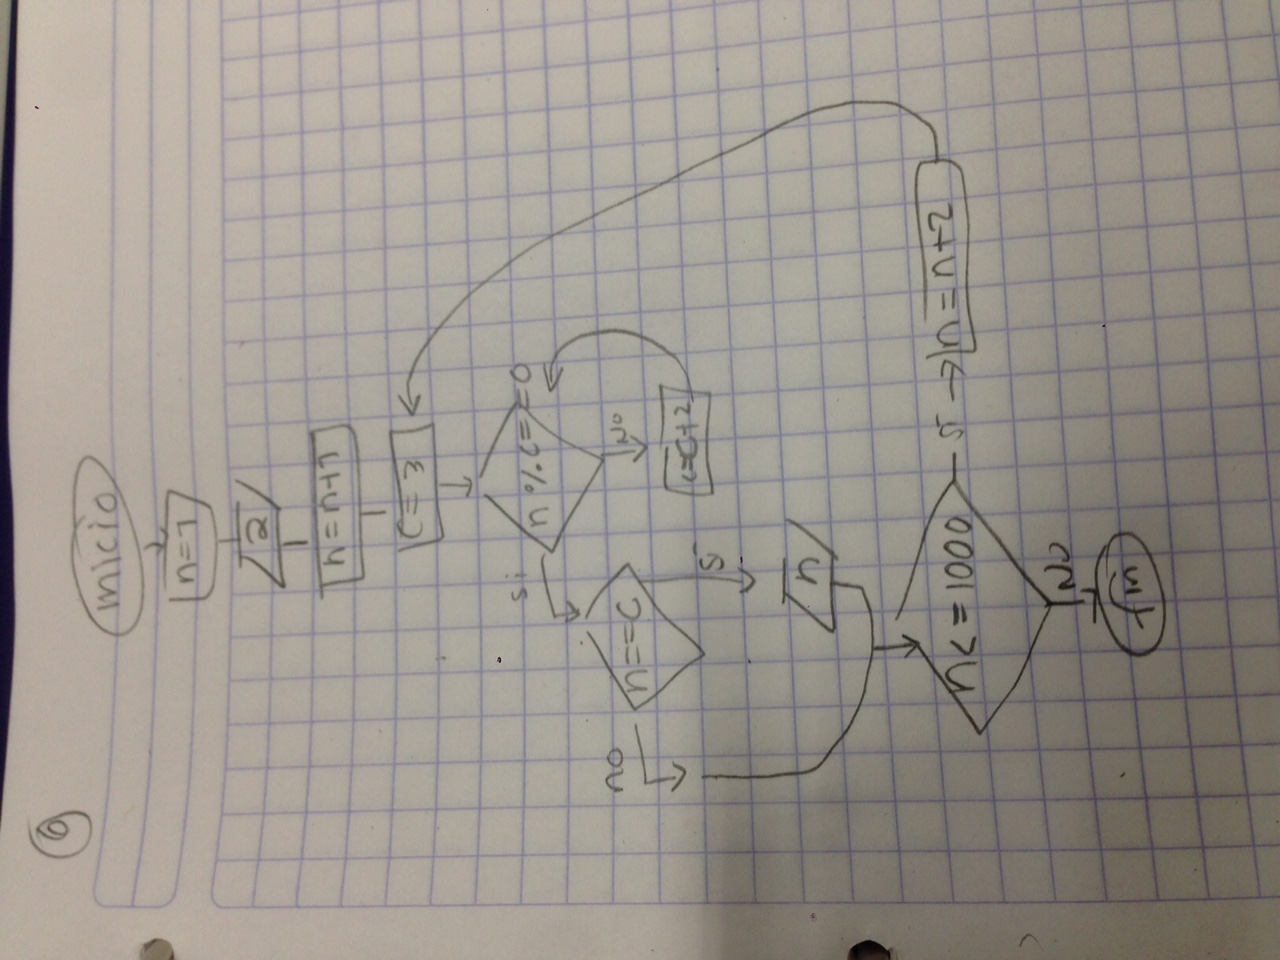 6
inicio
n=1
2
n=n+1
c=3
n%c==0
si
no
c=c+2
n==c
no
si
n
n<=1000
si
n=n+2
no
fin